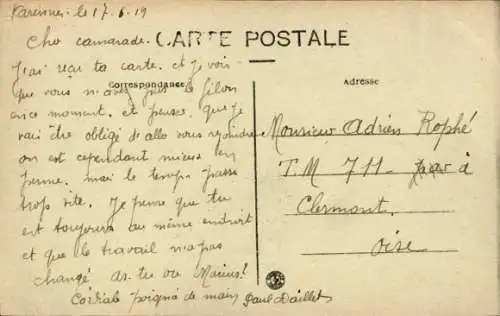 le 17.6.19
CARTE POSTALE
Cher camarade.
J'ai reçu ta carte. et je vois
Correspondance
Adresse
que vous n'avez pas le filon
en ce moment. et pense, que je
vais être obligé de aller vous rejoindre
on est cependant mieux en
perme. mais le temps passe
trop vite. Je pense que tu
est toujours au même endroit
et que le travail n'a pas
changé. As-tu vu Marius?
Cordiale poigné de main Paul
Monsieur Adrien Rophé
T.M 711 à
Clermont.
Oise